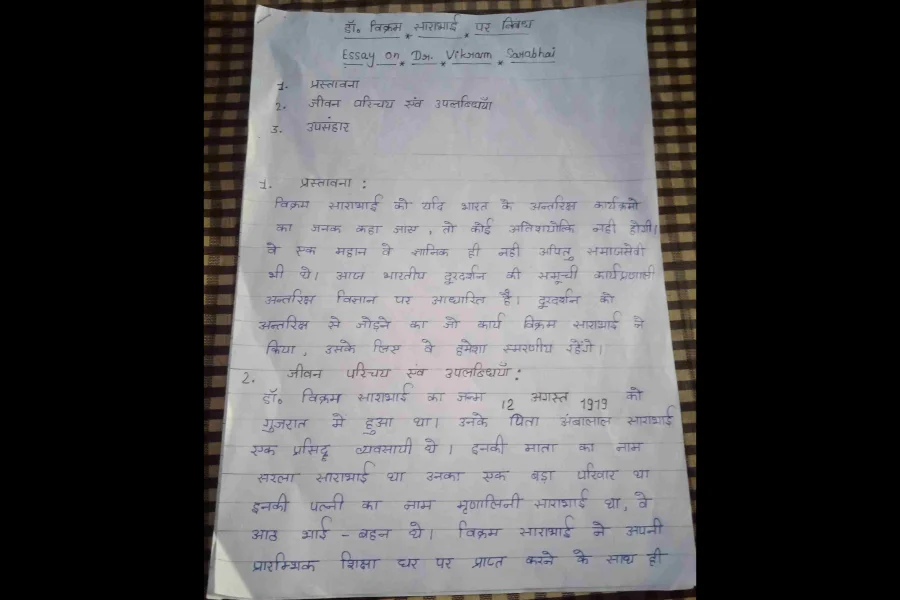 डॉ० विक्रम साराभाई पर निबंध
Essay on Dr. Vikram Sarabhai
1. प्रस्तावना
2. जीवन परिचय एंव उपलब्धियाँ
3. उपसंहार
1. प्रस्तावना :
विक्रम साराभाई को यदि भारत के अन्तरिक्ष कार्यक्रमो
का जनक कहा जाए, तो कोई अतिशयोक्ति नही होगी।
वे एक महान वे ज्ञानिक ही नही अपितु समाजसेवी
भी थे। आज भारतीय दूरदर्शन की समूची कार्यप्रणाली
अन्तरिक्ष विज्ञान पर आधारित है। दूरदर्शन को
अन्तरिक्ष से जोड़ने का जो कार्य विक्रम साराभाई ने
किया, उसके लिए वे हमेशा स्मरणीय रहेंगे।
2. जीवन परिचय एंव उपलब्धियाँ :
डॉ० विक्रम साराभाई का जन्म 12 अगस्त 1919 को
गुजरात में हुआ था। उनके पिता अंबालाल साराभाई
एक प्रसिद्ध व्यवसायी थे। इनकी माता का नाम
सरला साराभाई था उनका एक बड़ा परिवार था
इनकी पत्नी का नाम मृणालिनी साराभाई था, वे
आठ भाई - बहन थे। विक्रम साराभाई ने अपनी
प्रारम्भिक शिक्षा घर पर प्राप्त करने के साथ ही